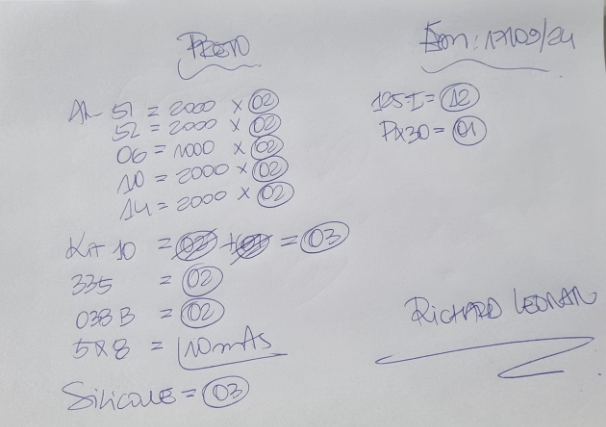 PRETO
Em: 17/09/24
AL 51 = 2000 x 02
52 = 2000 x 02
06 = 1000 x 02
10 = 2000 x 02
14 = 2000 x 02
125-I = 12
PX30 = 01
Kit 10 = 02 + 01 = 03
335 = 02
038 B = 02
5x8 = 10 mAs
Silicone = 03
RICHARD LEONAN